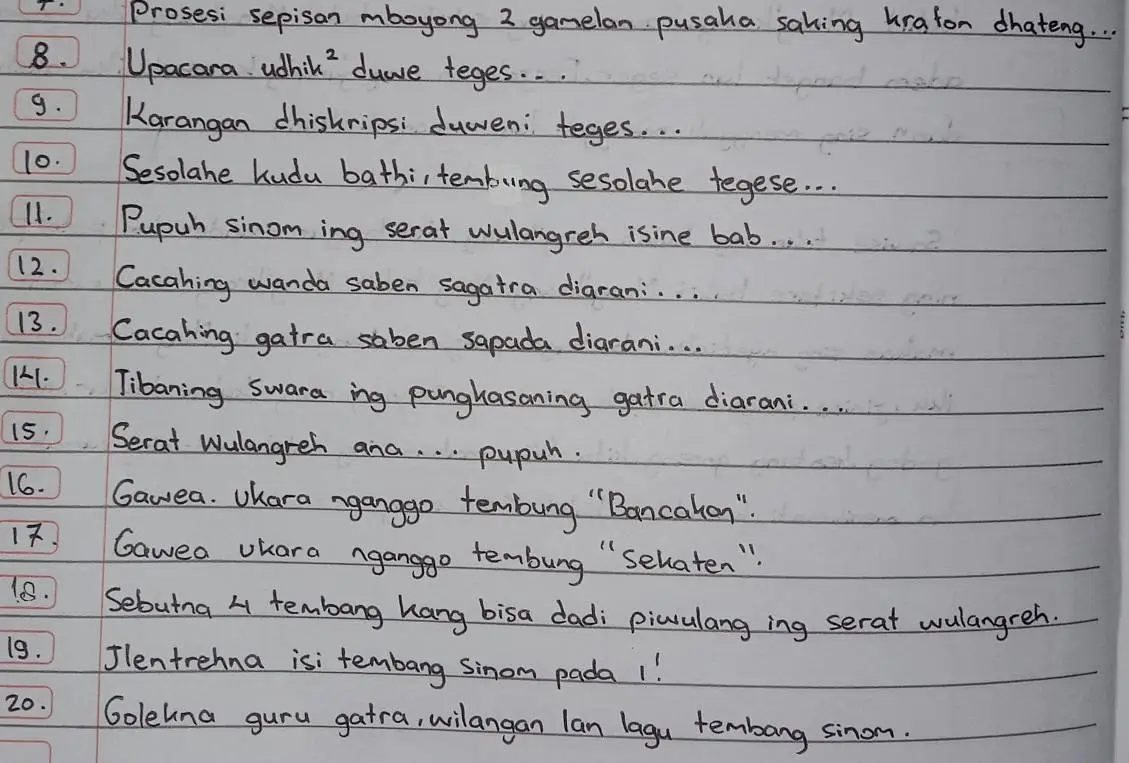 7. Prosesi sepisan mboyong 2 gamelan pusaka saking kraton dhateng...
8. Upacara udhik² duwe teges....
9. Karangan dhiskripsi duweni teges...
10. Sesolahe kudu bathi, tembung sesolahe tegese...
11. Pupuh sinom ing serat wulangreh isine bab...
12. Cacahing wanda saben sagatra diarani....
13. Cacahing gatra saben sapada diarani...
14. Tibaning swara ing pungkasaning gatra diarani...
15. Serat Wulangreh ana ... pupuh.
16. Gawea. Ukara nganggo tembung "Bancakan".
17. Gawea Ukara nganggo tembung "Sekaten".
18. Sebutna 4 tembang kang bisa dadi piwulang ing serat wulangreh.
19. Jlentrehna isi tembang sinom pada 1!
20. Golekna guru gatra, wilangan lan lagu tembang sinom.